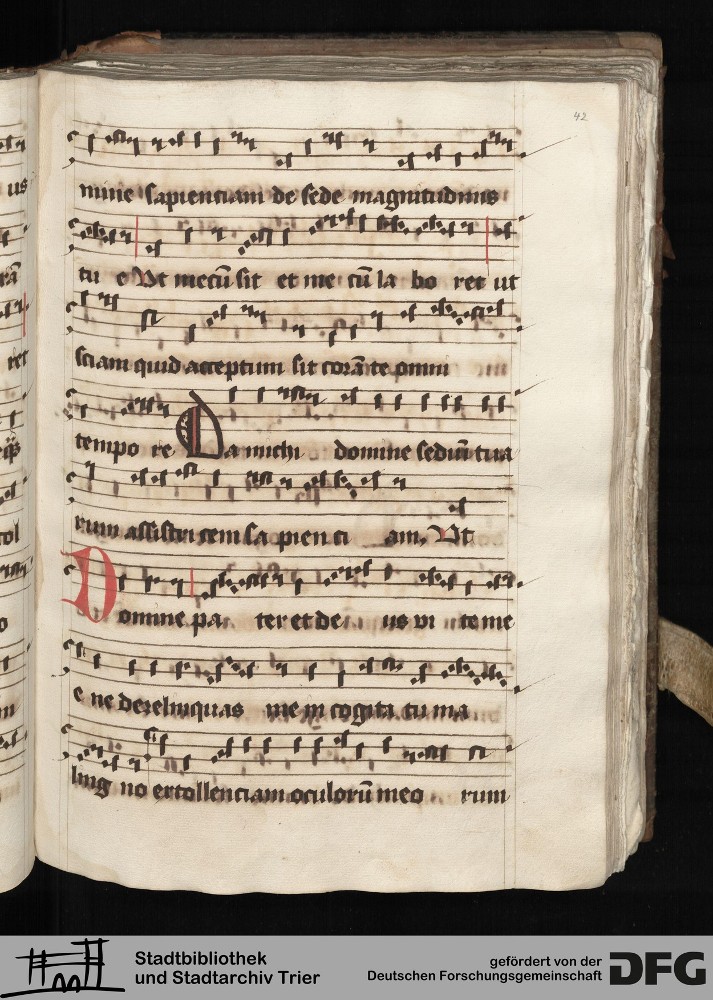 42
mine sapienciam de sede magnitudinis
tu e Ut mecū sit et me cū la bo ret ut
sciam quid acceptum sit corā te omni
tempo re Da michi domine sediū tua
rum assistricem sapien ci am, Ut
Domine pa ter et de us vi te me
e ne derelinquas me in cogita tu ma
ling no extollenciam oculorū meo rum
us
rā
ret
Stadtbibliothek
und Stadtarchiv Trier
gefördert von der
Deutschen Forschungsgemeinschaft
DFG